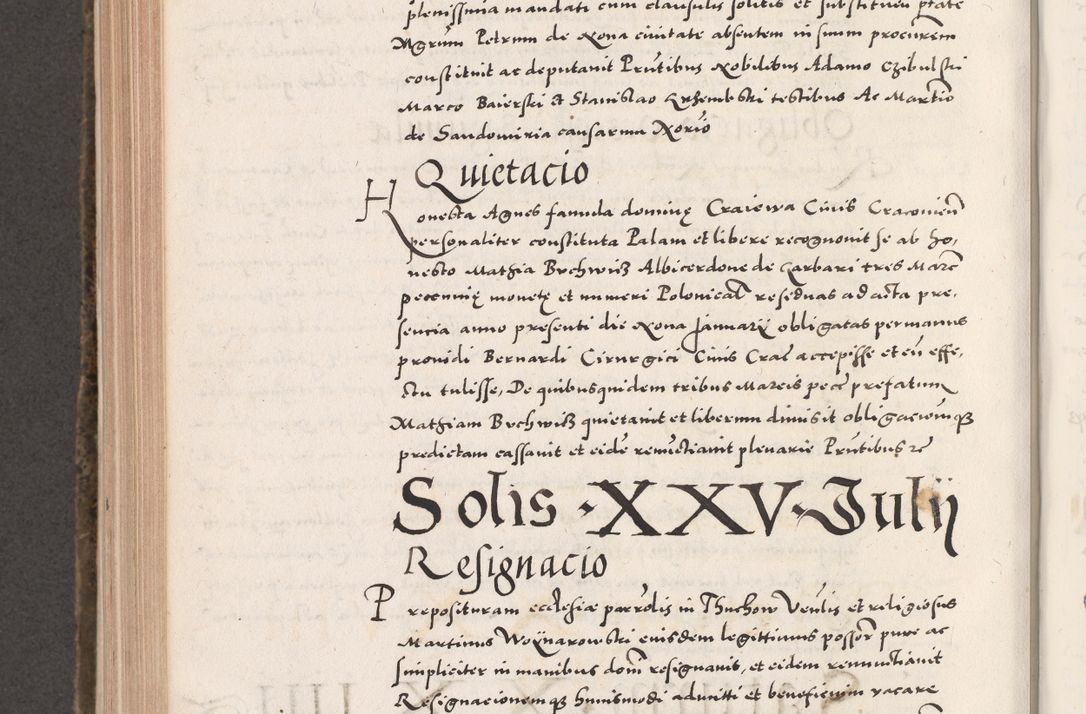 plenissima mandati cum clausulis solitis et substituen ptate
Mgrum Petrum de Xona civitate absentem in suum procurem
constituit ac deputavit Prutibus Nobilibus Adamo Czibulski
Marco Baierski et Stanislao Krzembski testibus Ac Martio
de Sandomiria causarum Norio
Quietacio
Honesta Agnes famula dominę Craiewa Civis Cracovien
personaliter constituta Palam et libere recognovit se ab ho,
nesto Mathia Bochwicz Albicerdone de Garbari tres Marc
pecunię monetę et numeri Polonical residuas ad acta pre,
sencia anno presenti die Nona Januarÿ obligatas per manus
providi Bernardi Cirurgici Civis Crac accepisse et cū effe,
ctu tulisse, De quibusquidem tribus Marcis pecc prefatum
Mathiam Bochwicz quietavit et liberum dimisit obligacionemq3
predictam cassavit et eidē renūctiavit plenarie Prutibus rc
Solis · XXV · Julÿ
Resignacio
Preposituram ecclesiæ parrolis in Thuchow Venlis et religiosus
Martinus Woÿnarowski eiusdem legittimus possor pure ac
simpliciter in manibus dom resignavit, et eidem renunctiavit
Resignacionemq3 huiusmodi admitti et beneficium vacare